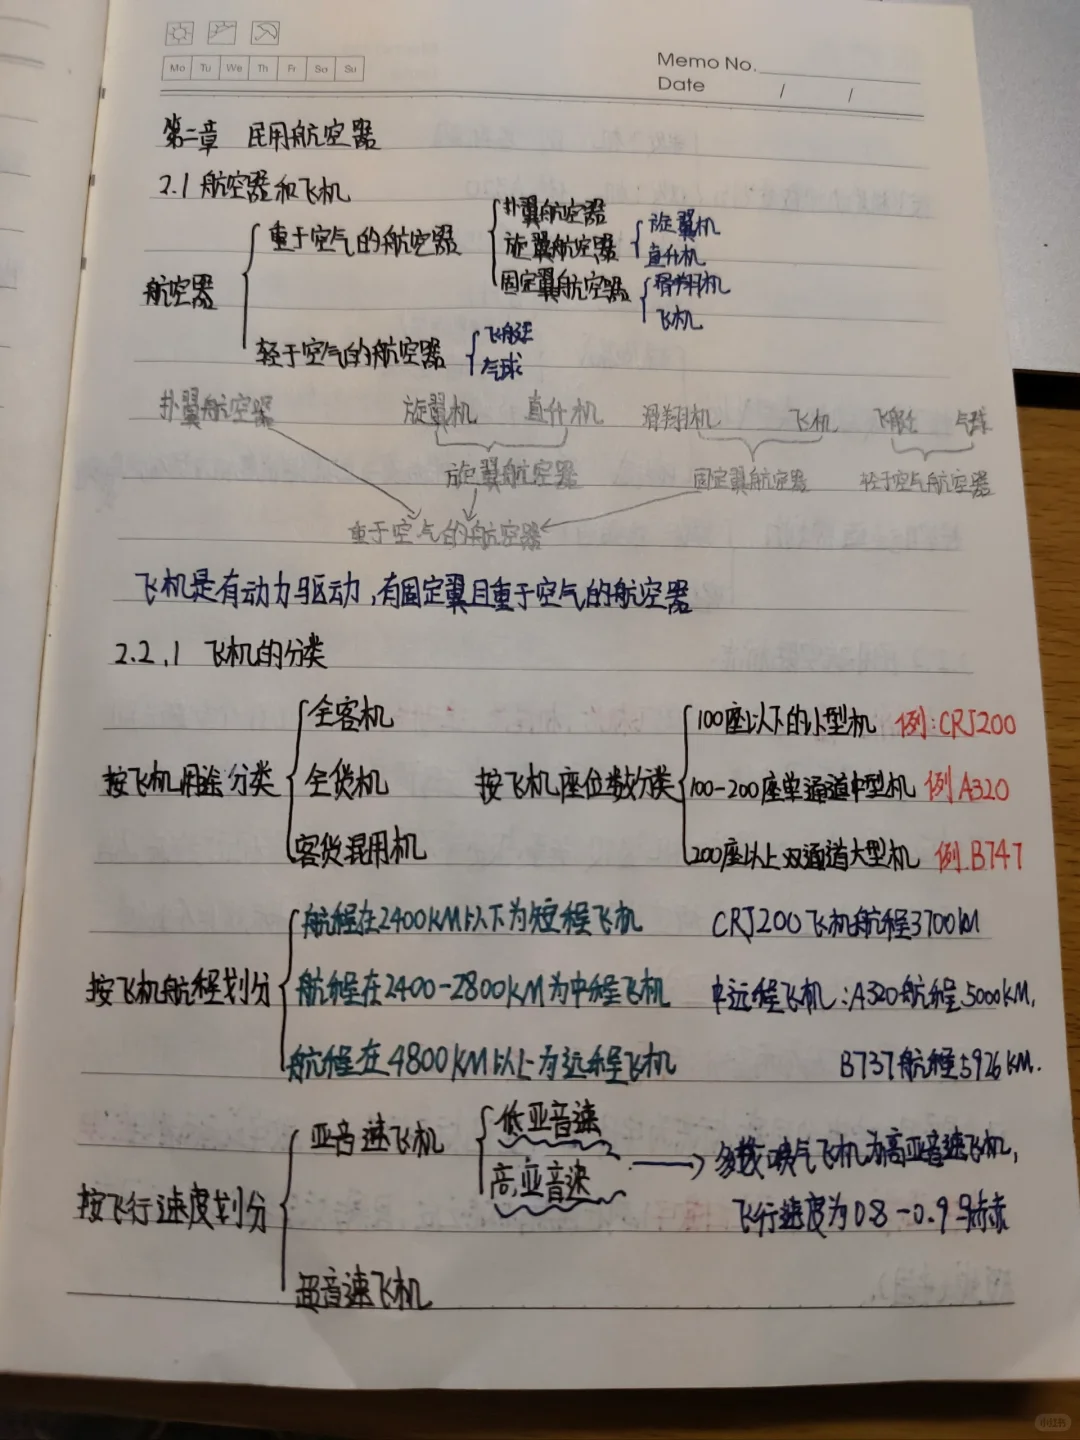 Mo Tu We Th Fr Sa Su
Memo No.
Date / /
第二章 民用航空器
2.1 航空器和飞机
航空器
重于空气的航空器
扑翼航空器
旋翼航空器
旋翼机
直升机
固定翼航空器
滑翔机
飞机
轻于空气的航空器
飞艇
气球
扑翼航空器 旋翼机 直升机 滑翔机 飞机 飞艇 气球
旋翼航空器 固定翼航空器 轻于空气航空器
重于空气的航空器
飞机是有动力驱动,有固定翼且重于空气的航空器
2.2.1 飞机的分类
按飞机用途分类
全客机
全货机
客货混用机
按飞机座位数分类
100座以下的小型机 例:CRJ200
100-200座单通道中型机 例A320
200座以上双通道大型机 例.B747
按飞机航程划分
航程在2400KM以下为短程飞机
航程在2400-2800KM为中程飞机
航程在4800KM以上为远程飞机
CRJ200飞机航程3700KM
中远程飞机:A320航程5000KM,
B737航程5926KM.
按飞行速度划分
亚音速飞机
低亚音速
高亚音速
多数喷气飞机为高亚音速飞机,
飞行速度为0.8-0.9马赫
超音速飞机
小红书